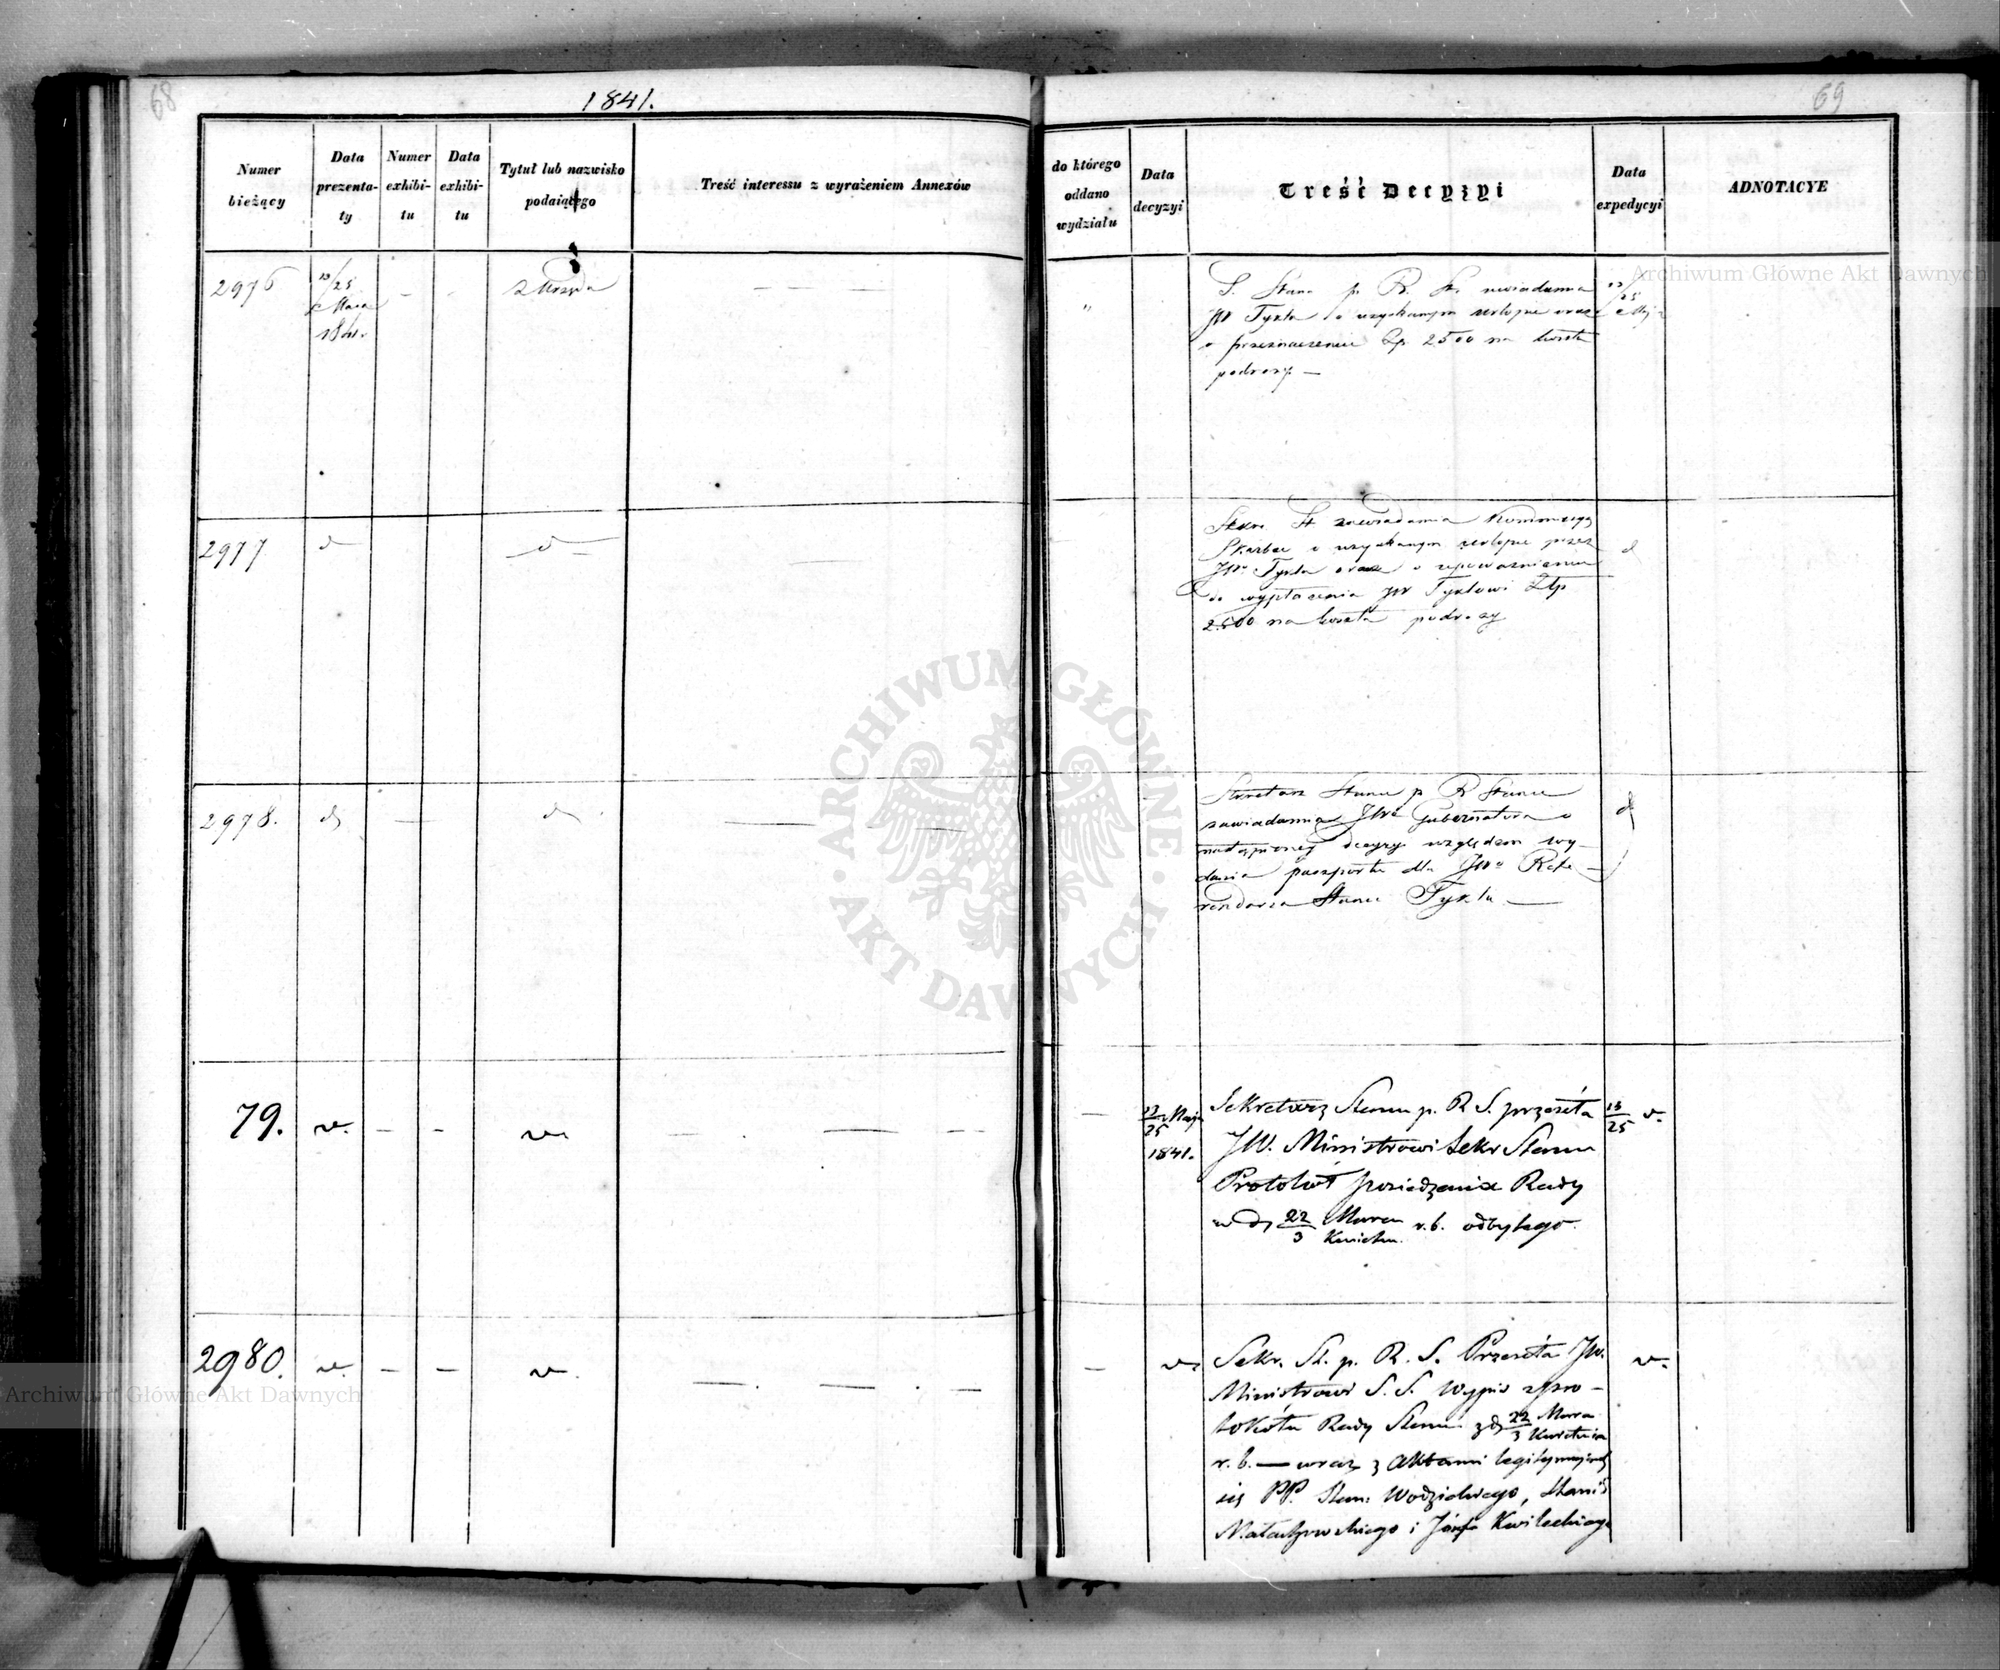 68
1841.
Numer bieżący
Data prezenta-ty
Numer exhibi-tu
Data exhibi-tu
Tytuł lub nazwisko podaiącego
Treść interessu z wyrażeniem Annexów
2976
13/25
Maja
1841.
z Urzędu
2977
d
d
2978.
d
d
79.
v.
v.
2980.
v.
v.
69
do którego oddano wydziału
Data decyzyi
Treść Decyzyi
Data expedycyi
ADNOTACYE
S. Stanu p. R. St. uwiadamia
JW Tykla o uzyskanym urlopie oraz
o przeznaczeniu Zp. 2500 na koszta
podroży. —
13/25
Maja
Sekr. St zawiadamia Kommissyą
Skarbu o uzyskanym urlopie przez
JWo Tykla oraz o upoważnieniu
do wypłacenia JW Tyklowi Złp
2.500 na koszta podroży
d
Sekretarz Stanu p R Stanu
zawiadamia JWo Gubernatora o
nastąpioney decyzyi względem wy-
dania paszportu dla JWo Refe-
rendarza Stanu Tykla —
d
13/25 Maja
1841.
Sekretarz Stanu p. R. S. przeseła
JW. Ministrowi Sekr Stanu
Protokół posiedzenia Rady
w d. 22/3 Marca/Kwietn. r. b. odbytego.
13/25 v.
v.
Sekr. St. p. R. S. Przeseła JW.
Ministrowi S. S. Wypis z pro-
tokółu Rady Stanu z d. 22/3 Marca/Kwietnia
r. b. — wraz z Aktami legitymujących
się PP. Stan: Wodzickiego, Stanis
Małachowskiego i Józefa Kwileckiego
v.
Archiwum Główne Akt Dawnych
ARCHIWUM GŁÓWNE · AKT DAWNYCH ·
Archiwum Główne Akt Dawnych